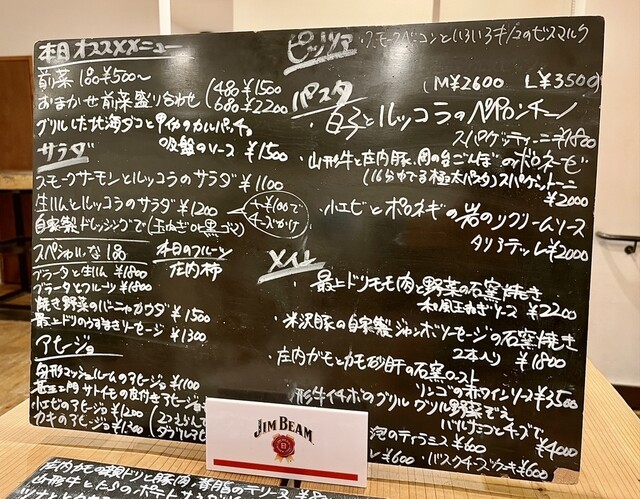 本日オススメメニュー
前菜 1品¥500〜
おまかせ前菜盛り合わせ (4品¥1500
6品¥2200
グリルした北海ダコと甲イカのカルパッチョ
吸盤のソース ¥1500
サラダ
スモークサーモンとルッコラのサラダ ¥1100
生ハムとルッコラのサラダ ¥1200
+¥100で
チーズがけ
自家製ドレッシングで(玉ねぎor黒ゴマ)
スペシャルな1品
ブラータと生ハム ¥1800
ブラータとフルーツ ¥1800
本日のフルーツ
庄内柿
焼き野菜のバーニャカウダ ¥1500
最上ドリのうずまきソーセージ ¥1300
アヒージョ
舟形マッシュルームのアヒージョ ¥1100
サトイモの皮付きアヒージョ
小エビのアヒージョ ¥1200
カキのアヒージョ ¥1300
ピッツァ
・スモークベーコンといろいろキノコのビスマルク
M¥2600 L¥3500
パスタ
・白子とルッコラのペペロンチーノ
スパゲッティーニ ¥1800
・山形牛と庄内豚、岡の台ごんぼのボロネーゼ
(16分ゆでる極太パスタ)スパゲットーニ
¥2000
・小エビとポロネギの岩のりクリームソース
タリアテッレ ¥2000
メイン
・最上ドリモモ肉と野菜の石窯焼き
和風玉ねぎソース ¥2200
・米沢豚の自家製ジャンボソーセージの石窯焼き
2本入り ¥1800
・庄内ガモとカモ砂肝の石窯ロースト
リンゴの赤ワインソース ¥3500
形牛イチボのグリル グリル野菜ぞえ
バルサミコとチーズで
¥4000
泡のティラミス ¥600
¥600 ・バスクチーズケーキ ¥600
JIM BEAM